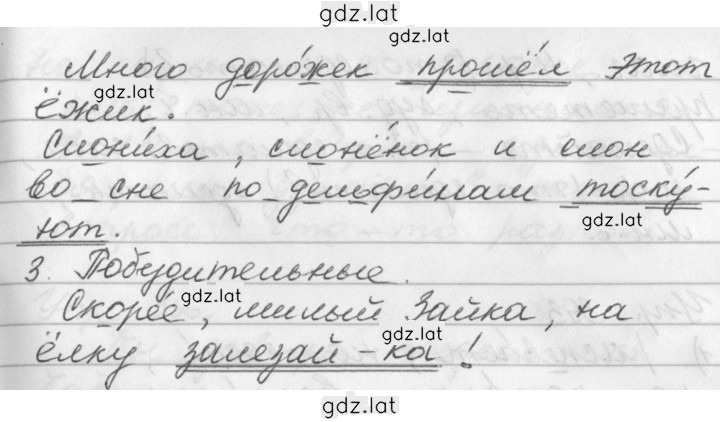 gdz.lat
gdz.lat
Много доро́жек прошёл этот
gdz.lat
ёжик.
Слони́ха, слонёнок и слон
во сне по дельфи́нам тоску́-
gdz.lat
ют.
3. Побудительные.
gdz.lat
Скоре́е, милый Зайка, на
ёлку залезай-ка!
gdz.lat
gdz.lat